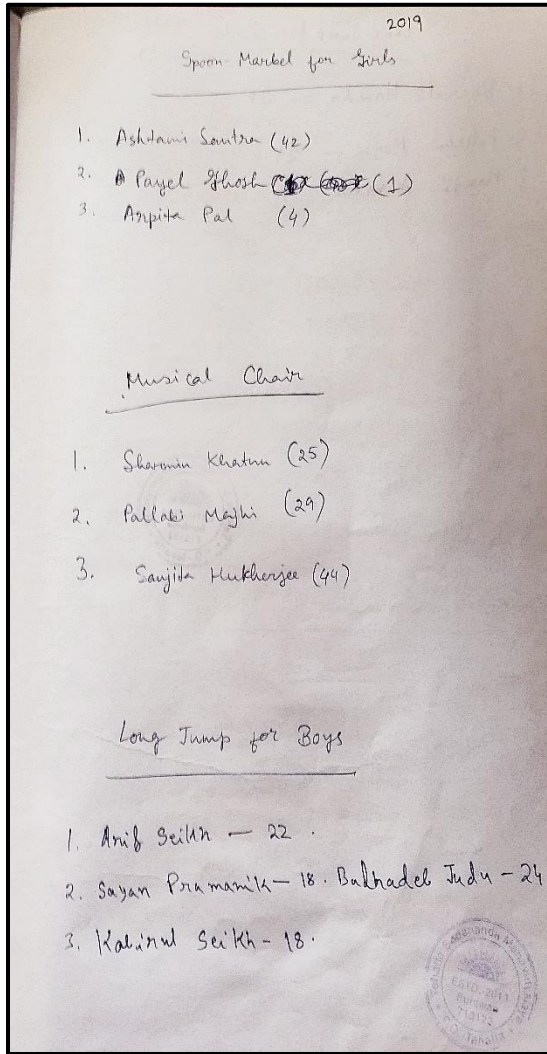 2019
Spoon-Marbel for Girls
1. Ashtami Santra (42)
2. Payel Ghosh (1)
3. Arpita Pal (4)
Musical Chair
1. Sharmin Khatun (25)
2. Pallabi Majhi (29)
3. Sanjita Mukherjee (44)
Long Jump for Boys
1. Arif Seikh — 22.
2. Sayan Pramanik — 18. Budhadeb Tudu - 24
3. Kabirul Seikh - 18.
Mahavidyalaya
ESTD.-2011
BURDWAN
713122